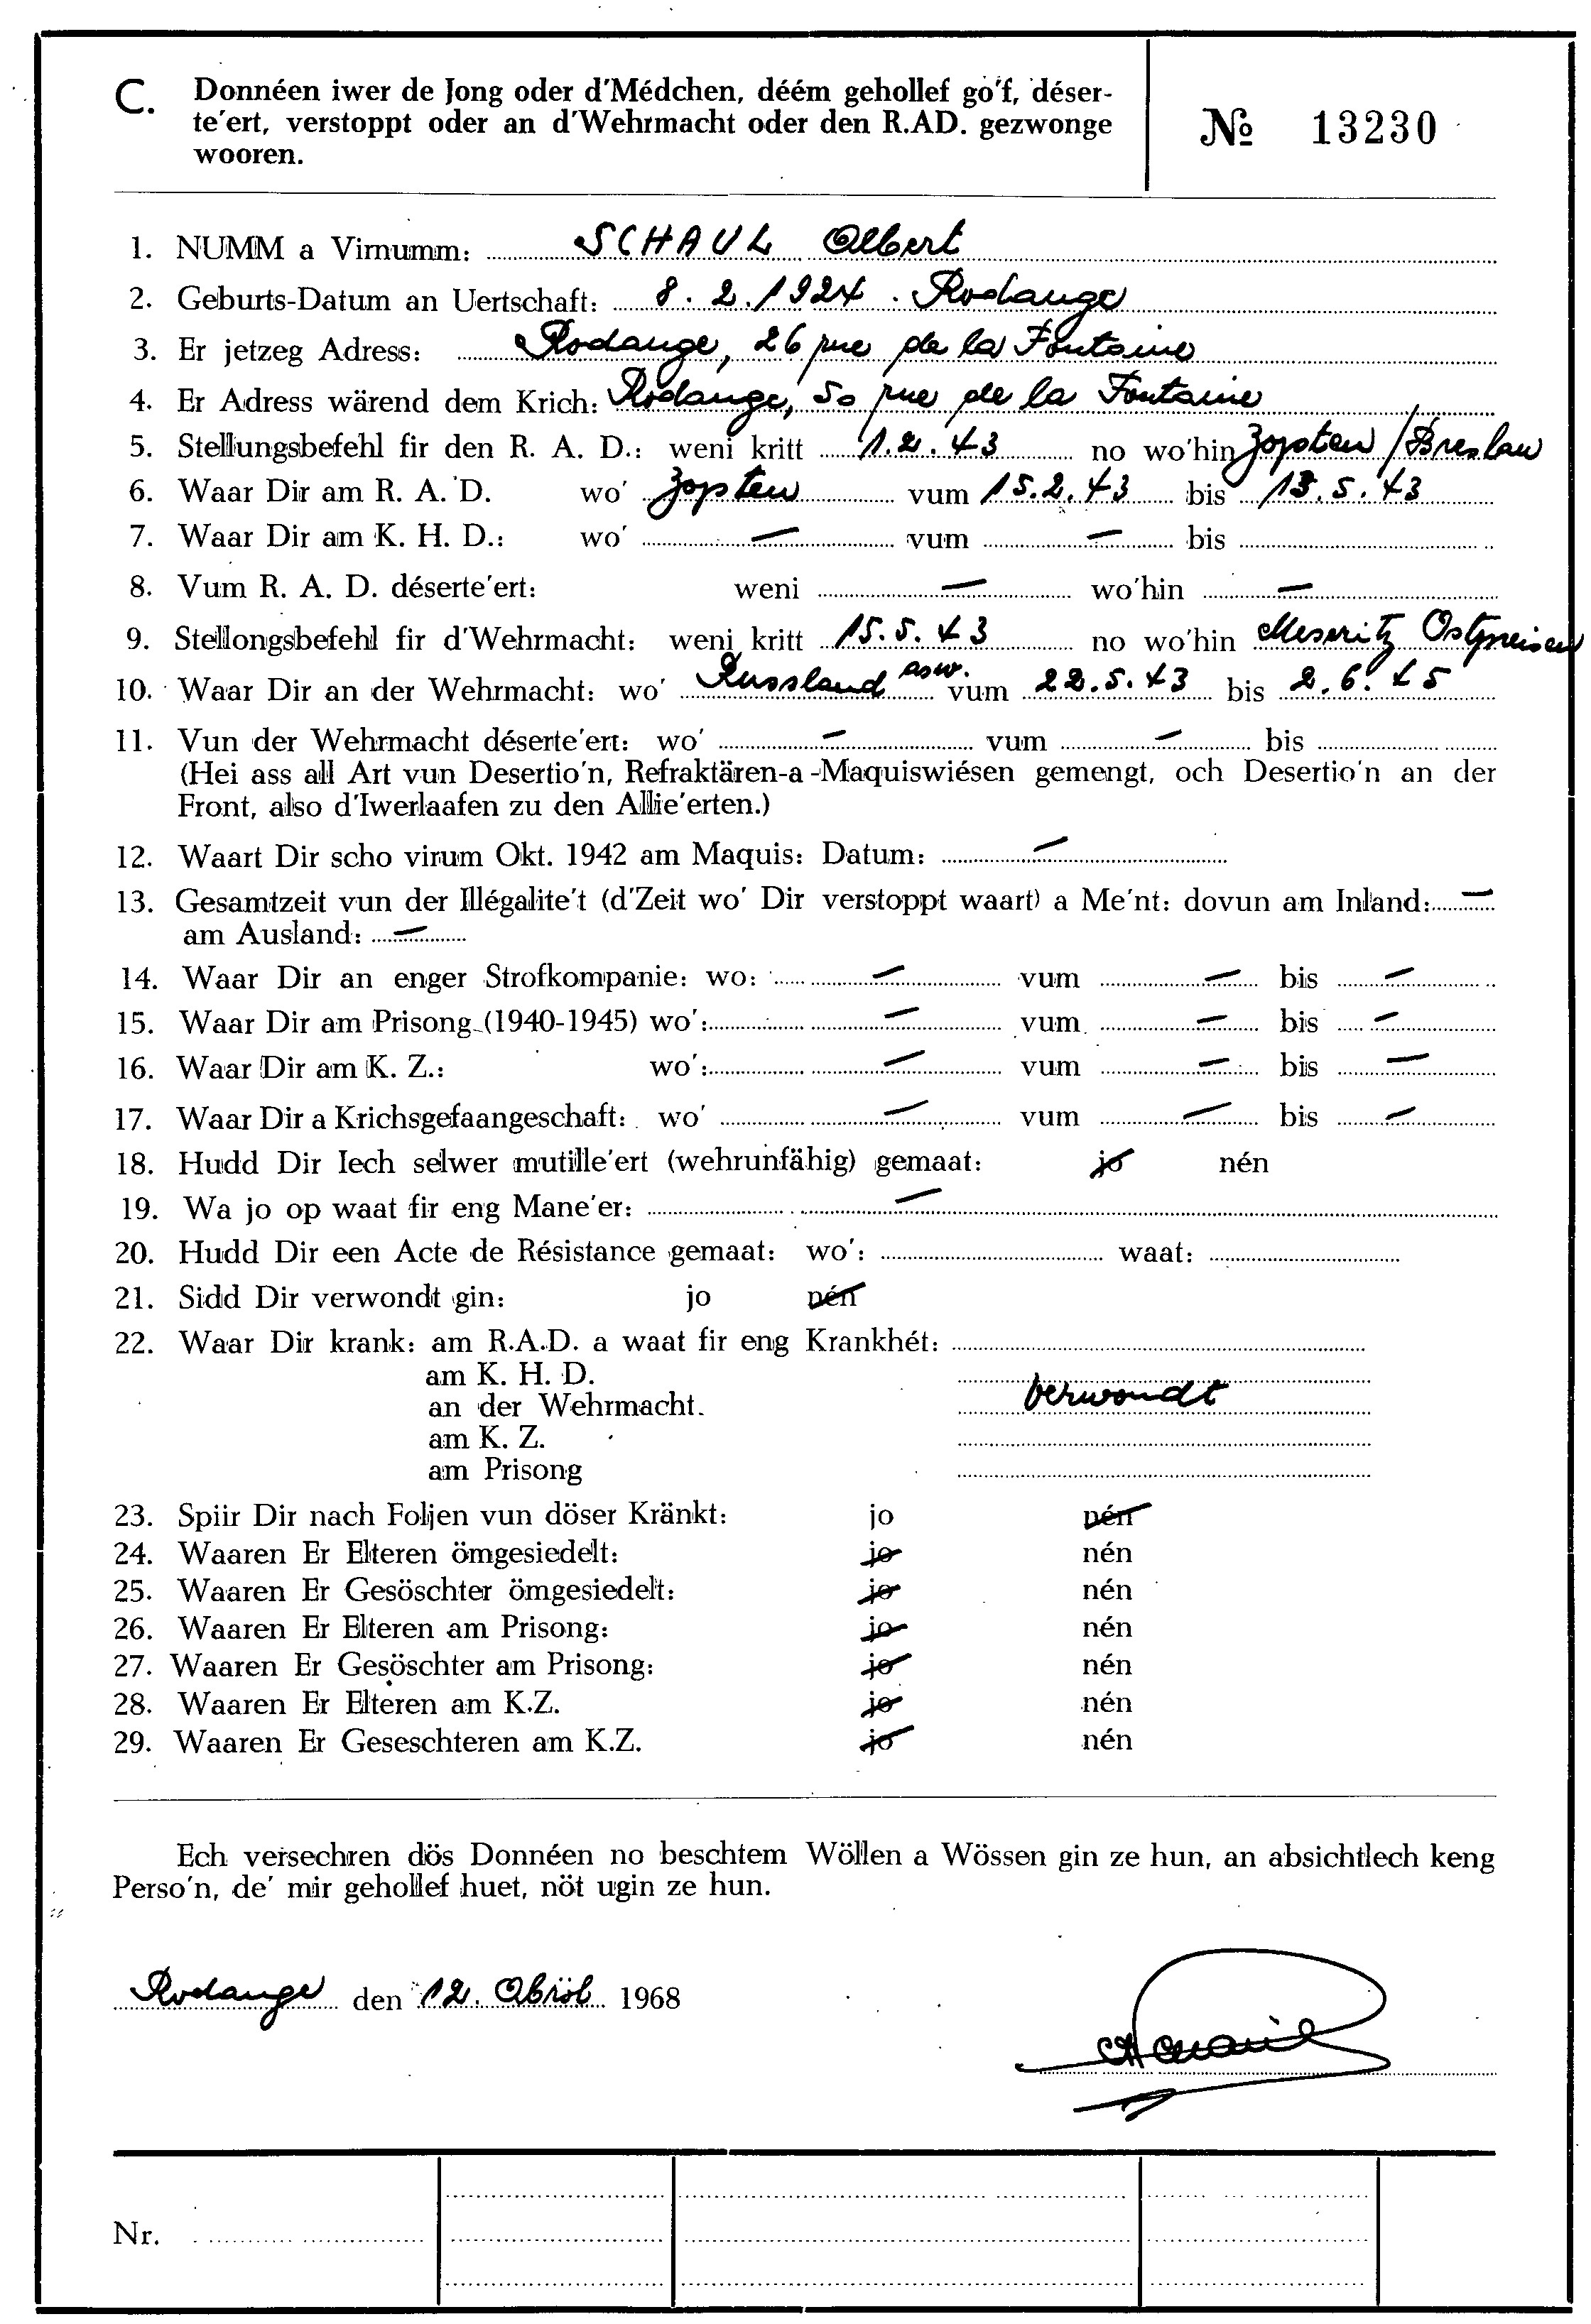 C. Donnéen iwer de Jong oder d'Médchen, déém gehollef go'f, déser-
te'ert, verstoppt oder an d'Wehrmacht oder den R.AD. gezwonge
wooren.
№ 13230
1. NUMM a Virnumm: SCHAUL Albert
2. Geburts-Datum an Uertschaft: 8.2.1924. Rodange
3. Er jetzeg Adress: Rodange, 26 rue de la Fontaine
4. Er Adress wärend dem Krich: Rodange, 50 rue de la Fontaine
5. Stellungsbefehl fir den R. A. D.: weni kritt 1.2.43 no wo'hin Zopten / Breslau
6. Waar Dir am R. A. D. wo' Zopten vum 15.2.43 bis 13.5.43
7. Waar Dir am K. H. D.: wo' — vum — bis
8. Vum R. A. D. déserte'ert: weni — wo'hin —
9. Stellongsbefehl fir d'Wehrmacht: weni kritt 15.5.43 no wo'hin Meseritz Ostpreisen
10. Waar Dir an der Wehrmacht: wo' Russland asw. vum 22.5.43 bis 2.6.45
11. Vun der Wehrmacht déserte'ert: wo' — vum — bis
(Hei ass all Art vun Desertio'n, Refraktären-a-Maquiswiésen gemengt, och Desertio'n an der
Front, also d'Iwerlaafen zu den Allie'erten.)
12. Waart Dir scho virum Okt. 1942 am Maquis: Datum: —
13. Gesamtzeit vun der Illégalite't (d'Zeit wo' Dir verstoppt waart) a Me'nt: dovun am Inland: —
am Ausland: —
14. Waar Dir an enger Strofkompanie: wo: — vum — bis —
15. Waar Dir am Prisong (1940-1945) wo': — vum — bis —
16. Waar Dir am K. Z.: wo': — vum — bis —
17. Waar Dir a Krichsgefaangeschaft: wo' — vum — bis —
18. Hudd Dir Iech selwer mutille'ert (wehrunfähig) gemaat: jo nén
19. Wa jo op waat fir eng Mane'er: —
20. Hudd Dir een Acte de Résistance gemaat: wo': waat:
21. Sidd Dir verwondt gin: jo nén
22. Waar Dir krank: am R.A.D. a waat fir eng Krankhét:
am K. H. D.
an der Wehrmacht. verwondt
am K. Z.
am Prisong
23. Spiir Dir nach Foljen vun döser Kränkt: jo nén
24. Waaren Er Elteren ömgesiedelt: jo nén
25. Waaren Er Gesöschter ömgesiedelt: jo nén
26. Waaren Er Elteren am Prisong: jo nén
27. Waaren Er Gesöschter am Prisong: jo nén
28. Waaren Er Elteren am K.Z. jo nén
29. Waaren Er Geseschteren am K.Z. jo nén
Ech versechren dös Donnéen no beschtem Wöllen a Wössen gin ze hun, an absichtlech keng
Perso'n, de' mir gehollef huet, nöt ugin ze hun.
Rodange den 12. Abröl 1968
Nr.